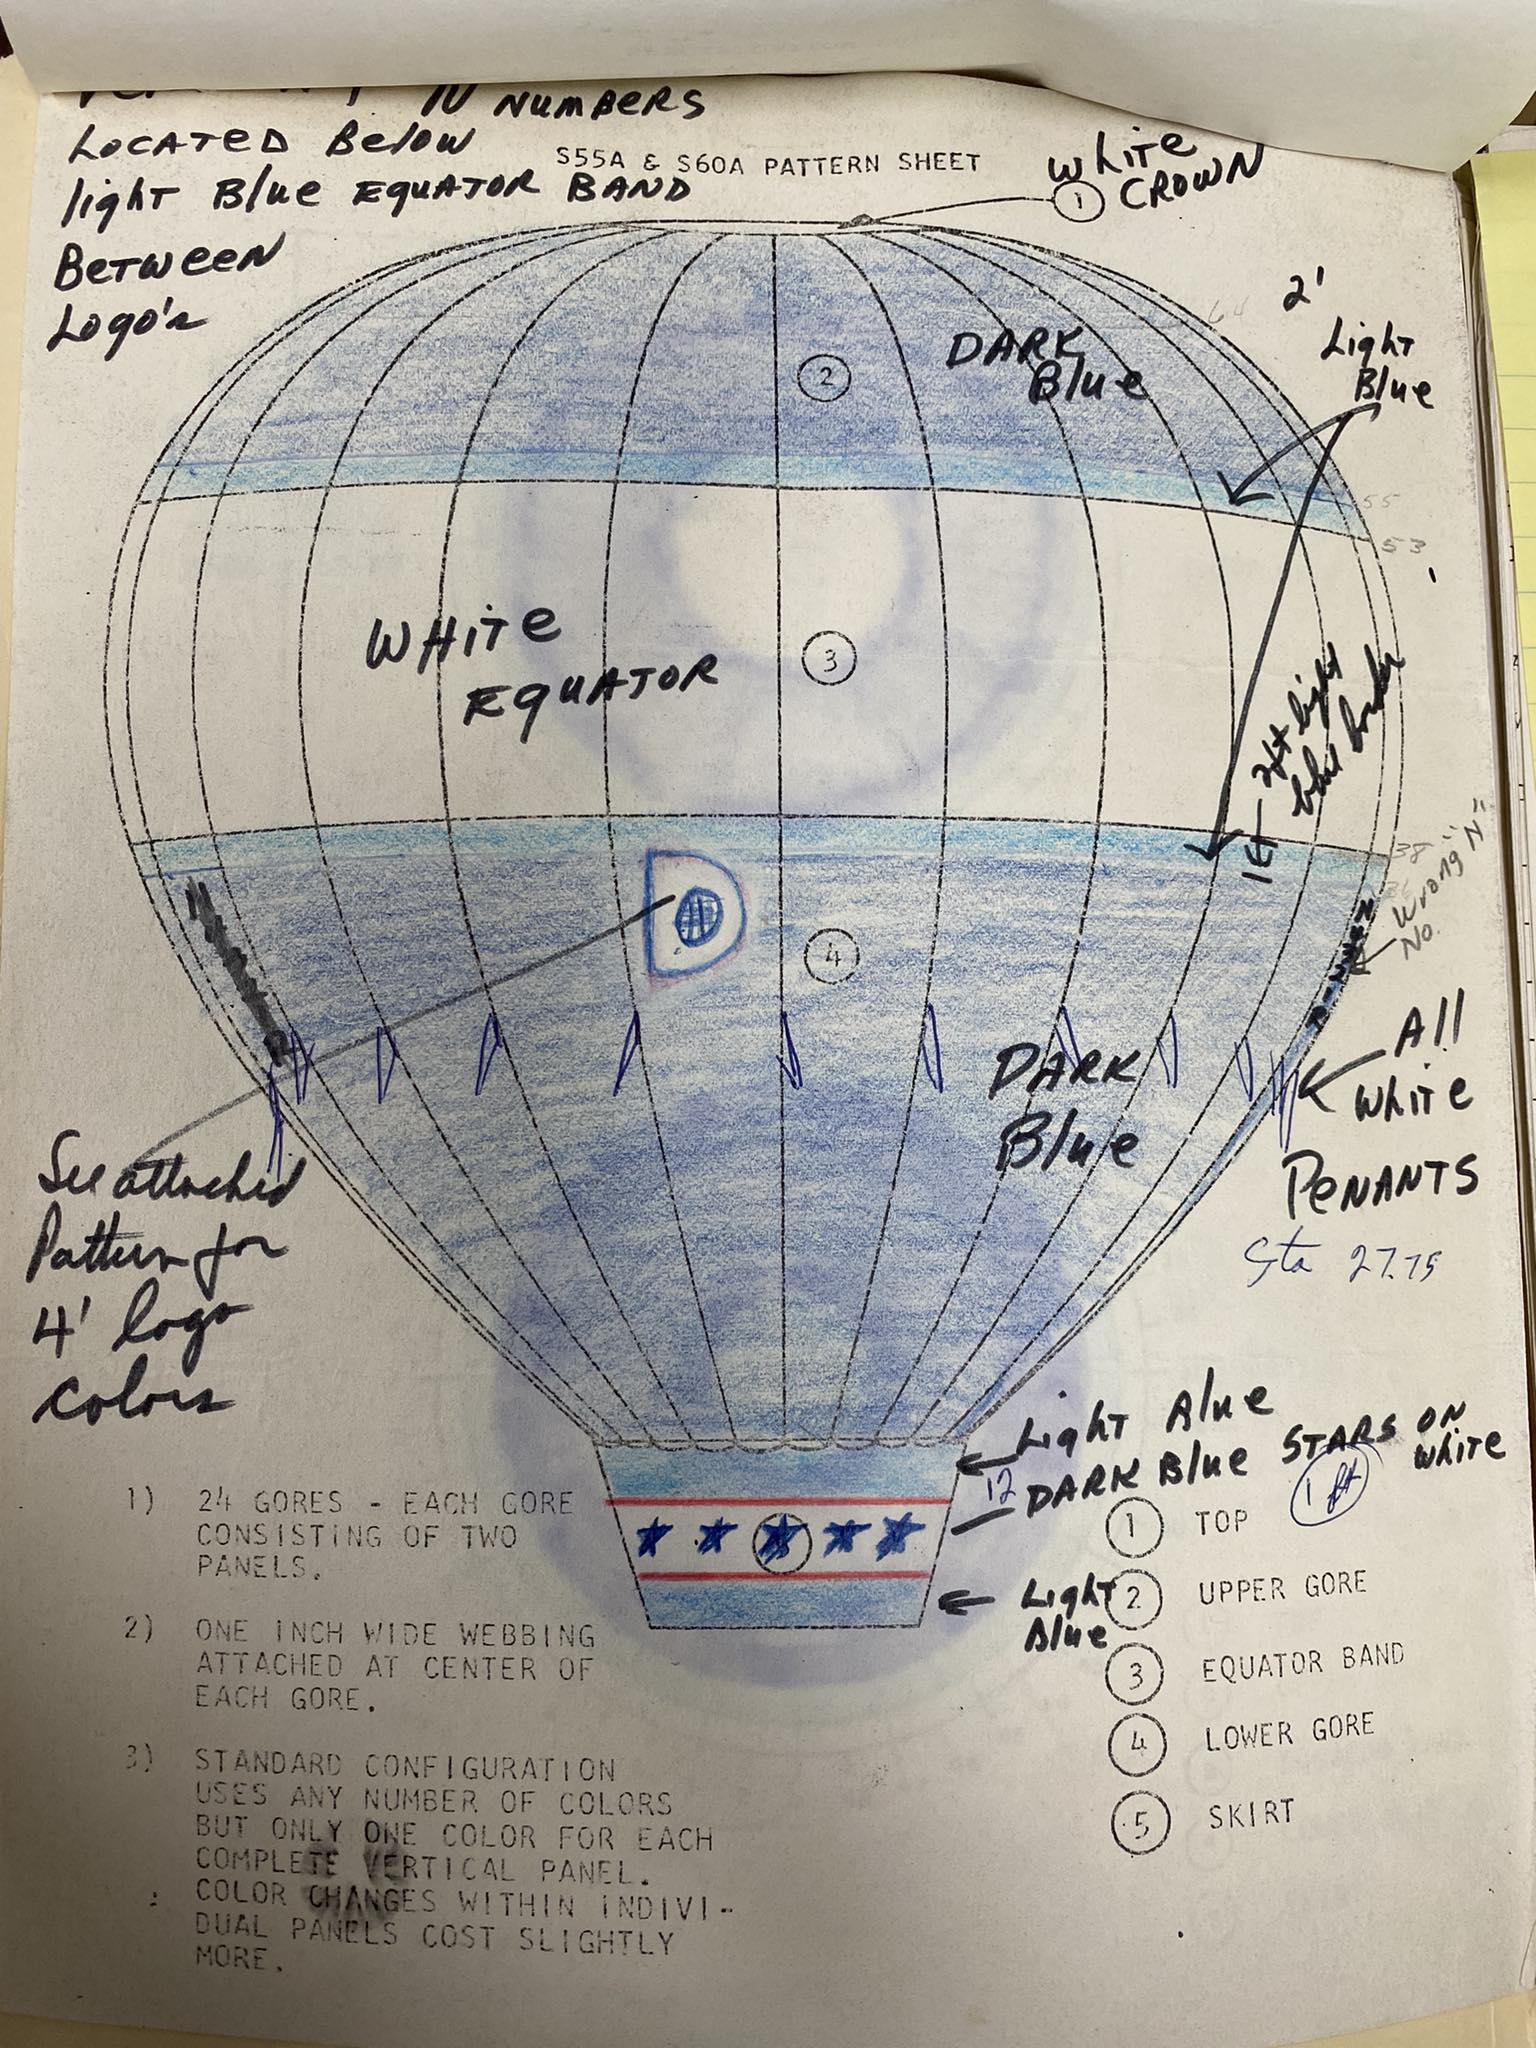 N NUMBERS
LOCATED Below
light Blue EQUATOR BAND
BETWEEN
Logo's
S55A & S60A PATTERN SHEET
White
CROWN
1
64
2'
Light
Blue
DARK
Blue
2
55
53
WHITe
EQUATOR
3
2ft light
blue border
38
Wrong "N"
No.
4
All
White
PENANTS
Sta 27.75
DARK
Blue
See attached
Pattern for
4' logo
colors
Light Blue
12 DARK Blue STARS ON
White
1 ft
Light
Blue
1) 24 GORES - EACH GORE
CONSISTING OF TWO
PANELS.
2) ONE INCH WIDE WEBBING
ATTACHED AT CENTER OF
EACH GORE.
3) STANDARD CONFIGURATION
USES ANY NUMBER OF COLORS
BUT ONLY ONE COLOR FOR EACH
COMPLETE VERTICAL PANEL.
COLOR CHANGES WITHIN INDIVI-
DUAL PANELS COST SLIGHTLY
MORE.
1 TOP
2 UPPER GORE
3 EQUATOR BAND
4 LOWER GORE
5 SKIRT